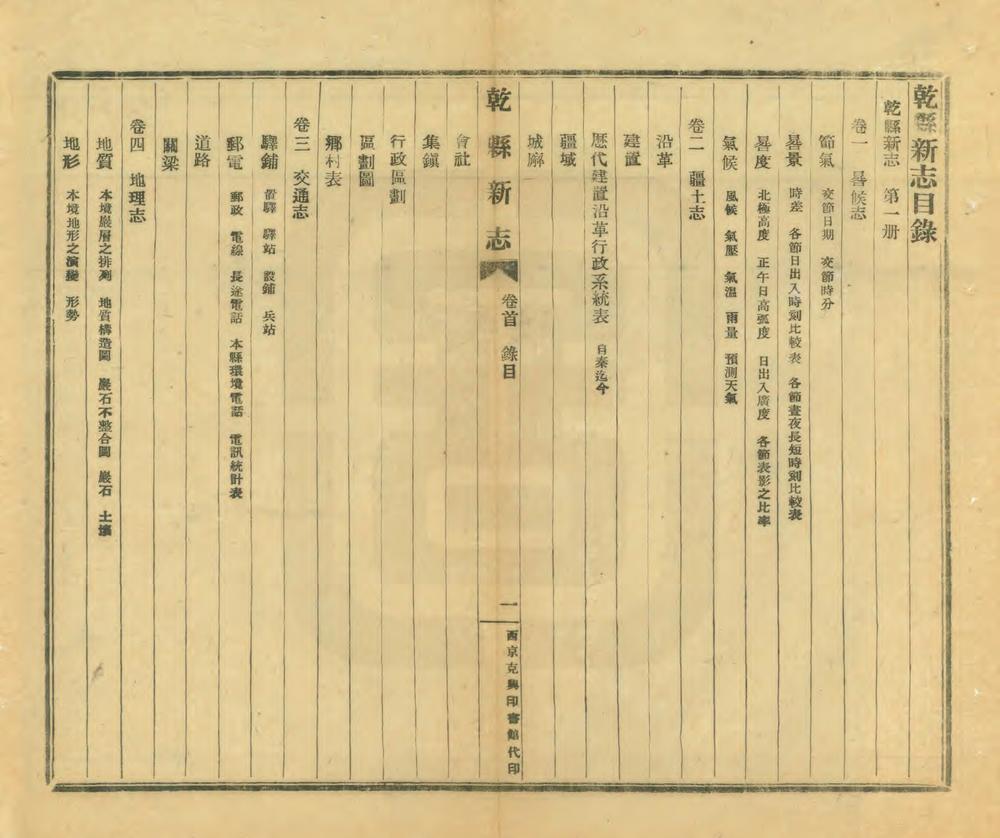 乾縣新志目錄
乾縣新志　第一册
卷一　晷候志
節氣　交節日期　交節時分
晷景　時差　各節日出入時刻比較表　各節晝夜長短時刻比較表
晷度　北極高度　正午日高弧度　日出入廣度　各節表影之比率
氣候　風候　氣壓　氣溫　雨量　預測天氣
卷二　疆土志
沿革
建置
歷代建置沿革行政系統表　自秦迄今
疆域
城廨
乾縣新志　卷首　錄目　一　西京克興印書館代印
會社
集鎮
行政區劃
區劃圖
鄉村表
卷三　交通志
驛鋪　置驛　驛站　設鋪　兵站
郵電　郵政　電線　長途電話　本縣環境電話　電訊統計表
道路
關梁
卷四　地理志
地質　本境巖層之排列　地質構造圖　巖石不整合圖　巖石　土壤
地形　本境地形之演變　形勢